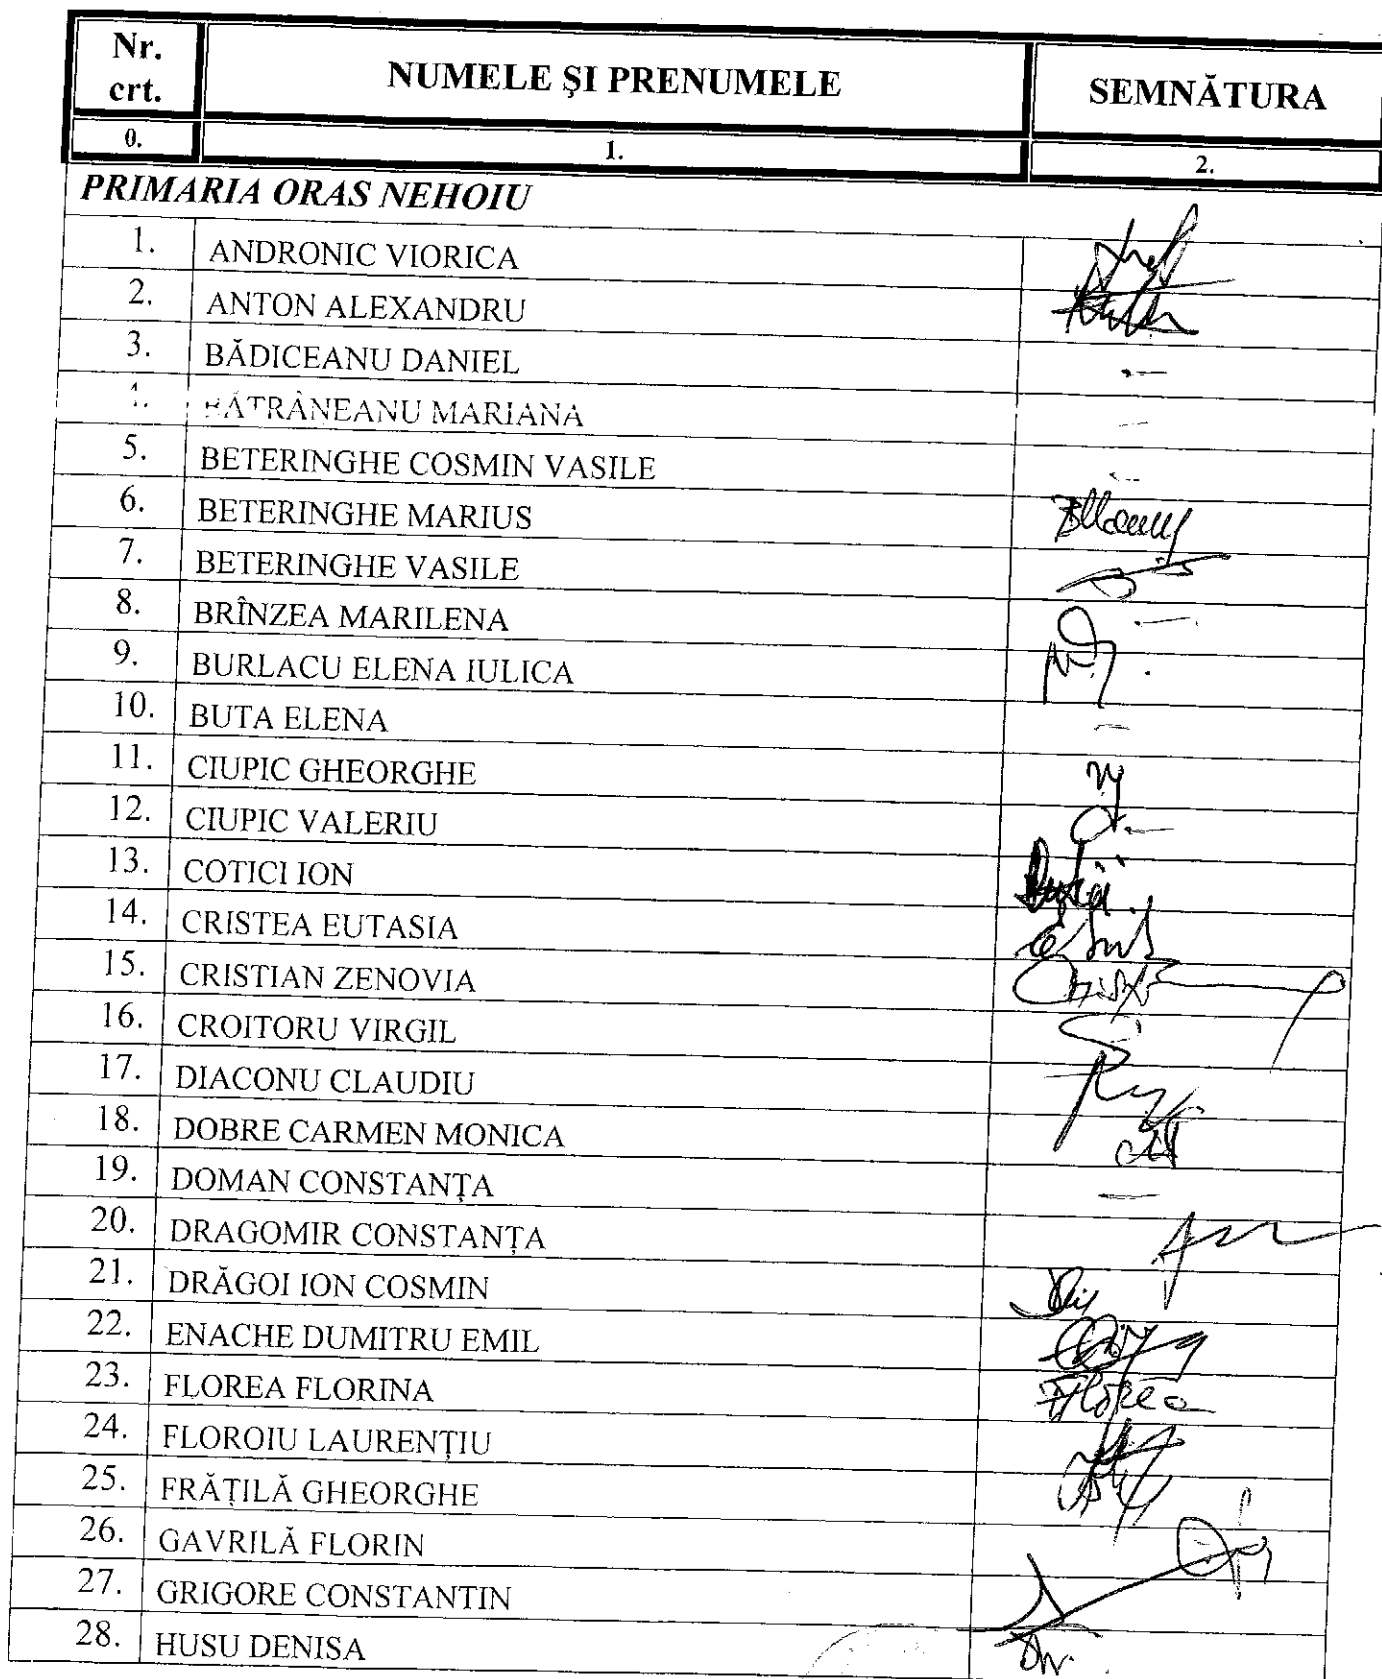 Nr. crt. NUMELE ŞI PRENUMELE SEMNĂTURA
0. 1. 2.
PRIMARIA ORAS NEHOIU
1. ANDRONIC VIORICA
2. ANTON ALEXANDRU
3. BĂDICEANU DANIEL -
4. BĂTRÂNEANU MARIANA -
5. BETERINGHE COSMIN VASILE -
6. BETERINGHE MARIUS
7. BETERINGHE VASILE
8. BRÎNZEA MARILENA -
9. BURLACU ELENA IULICA
10. BUTA ELENA -
11. CIUPIC GHEORGHE
12. CIUPIC VALERIU -
13. COTICI ION
14. CRISTEA EUTASIA
15. CRISTIAN ZENOVIA
16. CROITORU VIRGIL
17. DIACONU CLAUDIU
18. DOBRE CARMEN MONICA
19. DOMAN CONSTANŢA -
20. DRAGOMIR CONSTANŢA
21. DRĂGOI ION COSMIN
22. ENACHE DUMITRU EMIL
23. FLOREA FLORINA Florea
24. FLOROIU LAURENŢIU
25. FRĂŢILĂ GHEORGHE
26. GAVRILĂ FLORIN
27. GRIGORE CONSTANTIN
28. HUSU DENISA